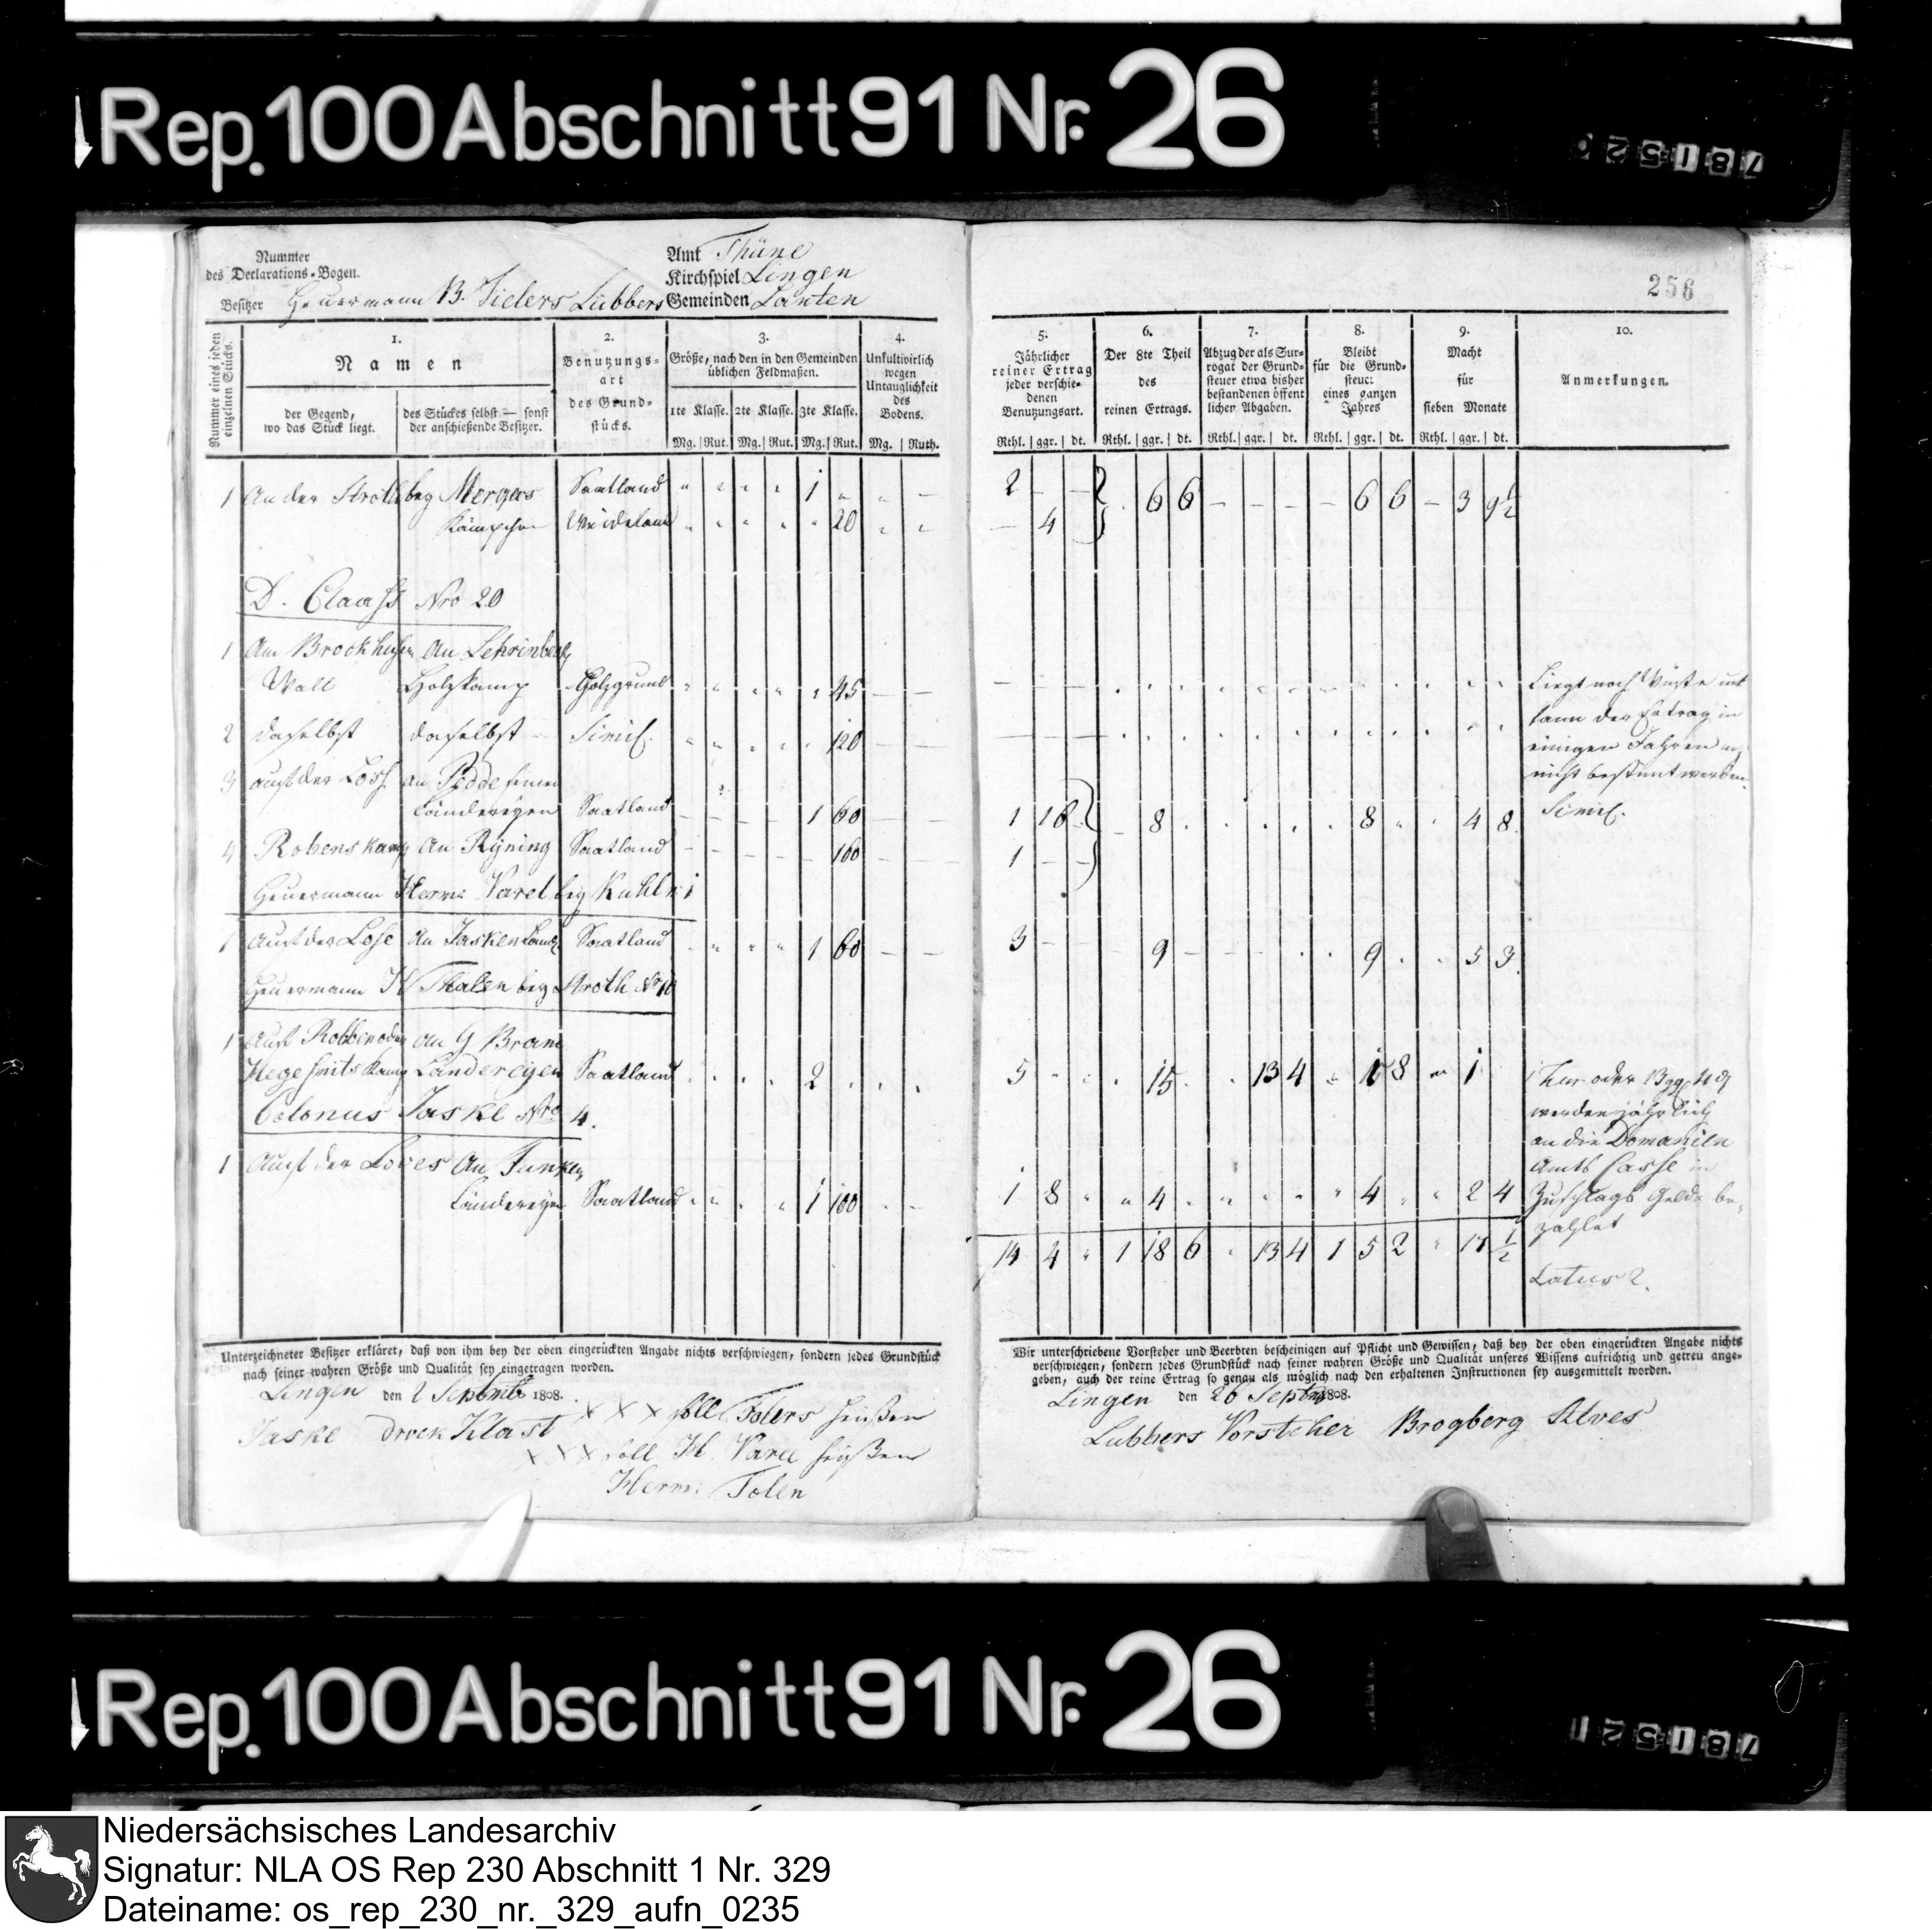 Rep. 100 Abschnitt 91 Nr. 26
Nummer
des Declarations-Bogen.
Besitzer Heuermann B. Tielers Lübbers
Amt Thüne
Kirchspiel Lingen
Gemeinden Laxten
256
Nummer eines jeden einzelnen Stücks.
1.
Namen
der Gegend, wo das Stück liegt.
des Stückes selbst — sonst der anschießende Besitzer.
2.
Benutzungs-
art
des Grund-
stücks.
3.
Größe, nach den in den Gemeinden
üblichen Feldmaßen.
1te Klasse. 2te Klasse. 3te Klasse.
Mg. Rut. Mg. Rut. Mg. Rut.
4.
Unkultivirlich
wegen
Untauglichkeit
des
Bodens.
Mg. Ruth.
5.
Jährlicher
reiner Ertrag
jeder verschie-
denen
Benutzungsart.
Rthl. ggr. dt.
6.
Der 8te Theil
des
reinen Ertrags.
Rthl. ggr. dt.
7.
Abzug der als Sur-
rogat der Grund-
steuer etwa bisher
bestandenen öffent
lichen Abgaben.
Rthl. ggr. dt.
8.
Bleibt
für die Grund-
steuer
eines ganzen
Jahres
Rthl. ggr. dt.
9.
Macht
für
sieben Monate
Rthl. ggr. dt.
10.
Anmerkungen.
1 An der Stroth bey Mergers Saatland 1 2 6 6 6 6 3 9½
Kämpchen Weideland 20 4
D. Claass Nro 20
1 Am Brockhuser An Lehrinberg
Wall Holzkamp Holzgrund 45 Liegt noch Wüste und
kann der Ertrag in
2 daselbst daselbst Simil. 120 einigen Jahren
nicht bestimt werden.
3 auf der Lohs an Pedde seinen
Ländereyen Saatland 1 60 1 16 8 8 4 8 Simil.
4 Robens Kamp An Ryning Saatland 160 1
Heuermann Herm: Varel bey Kuhl
1 Auf der Lose An Jasken Land Saatland 1 60 3 9 9 5 3
Heuermann H Thalen bey Stroth No 10
1 Auf Robben oder an G Bram
Hegesmits Kamp Ländereyen Saatland 2 5 15 13 4 1 8 1 oder 13 ggr 4 d
werden jährlich
an die Domainen
Amts Casse in
Zuschlags Gelde be-
zahlet
Colonus Jaske Nro 4.
1 Auf der Looes An Funken
Ländereyen Saatland 1 100 1 8 4 4 2 4
14 4 1 18 6 13 4 1 5 2 17 ½
Latus 2.
Unterzeichneter Besitzer erkläret, daß von ihm bey der oben eingerückten Angabe nichts verschwiegen, sondern jedes Grundstück
nach seiner wahren Größe und Qualität sey eingetragen worden.
Lingen den 2 Septembr 1808.
Jaske Klast
XXX soll Tolers heißen
XXX soll H. Varel heißen
Herm: Tolen
Wir unterschriebene Vorsteher und Beerbten bescheinigen auf Pflicht und Gewissen, daß bey der oben eingerückten Angabe nichts
verschwiegen, sondern jedes Grundstück nach seiner wahren Größe und Qualität unseres Wissens aufrichtig und getreu ange-
geben, auch der reine Ertrag so genau als möglich nach den erhaltenen Instructionen sey ausgemittelt worden.
Lingen den 26 Septbr 1808.
Lubbers Vorsteher Brogberg Alves
Rep. 100 Abschnitt 91 Nr. 26
Niedersächsisches Landesarchiv
Signatur: NLA OS Rep 230 Abschnitt 1 Nr. 329
Dateiname: os_rep_230_nr._329_aufn_0235